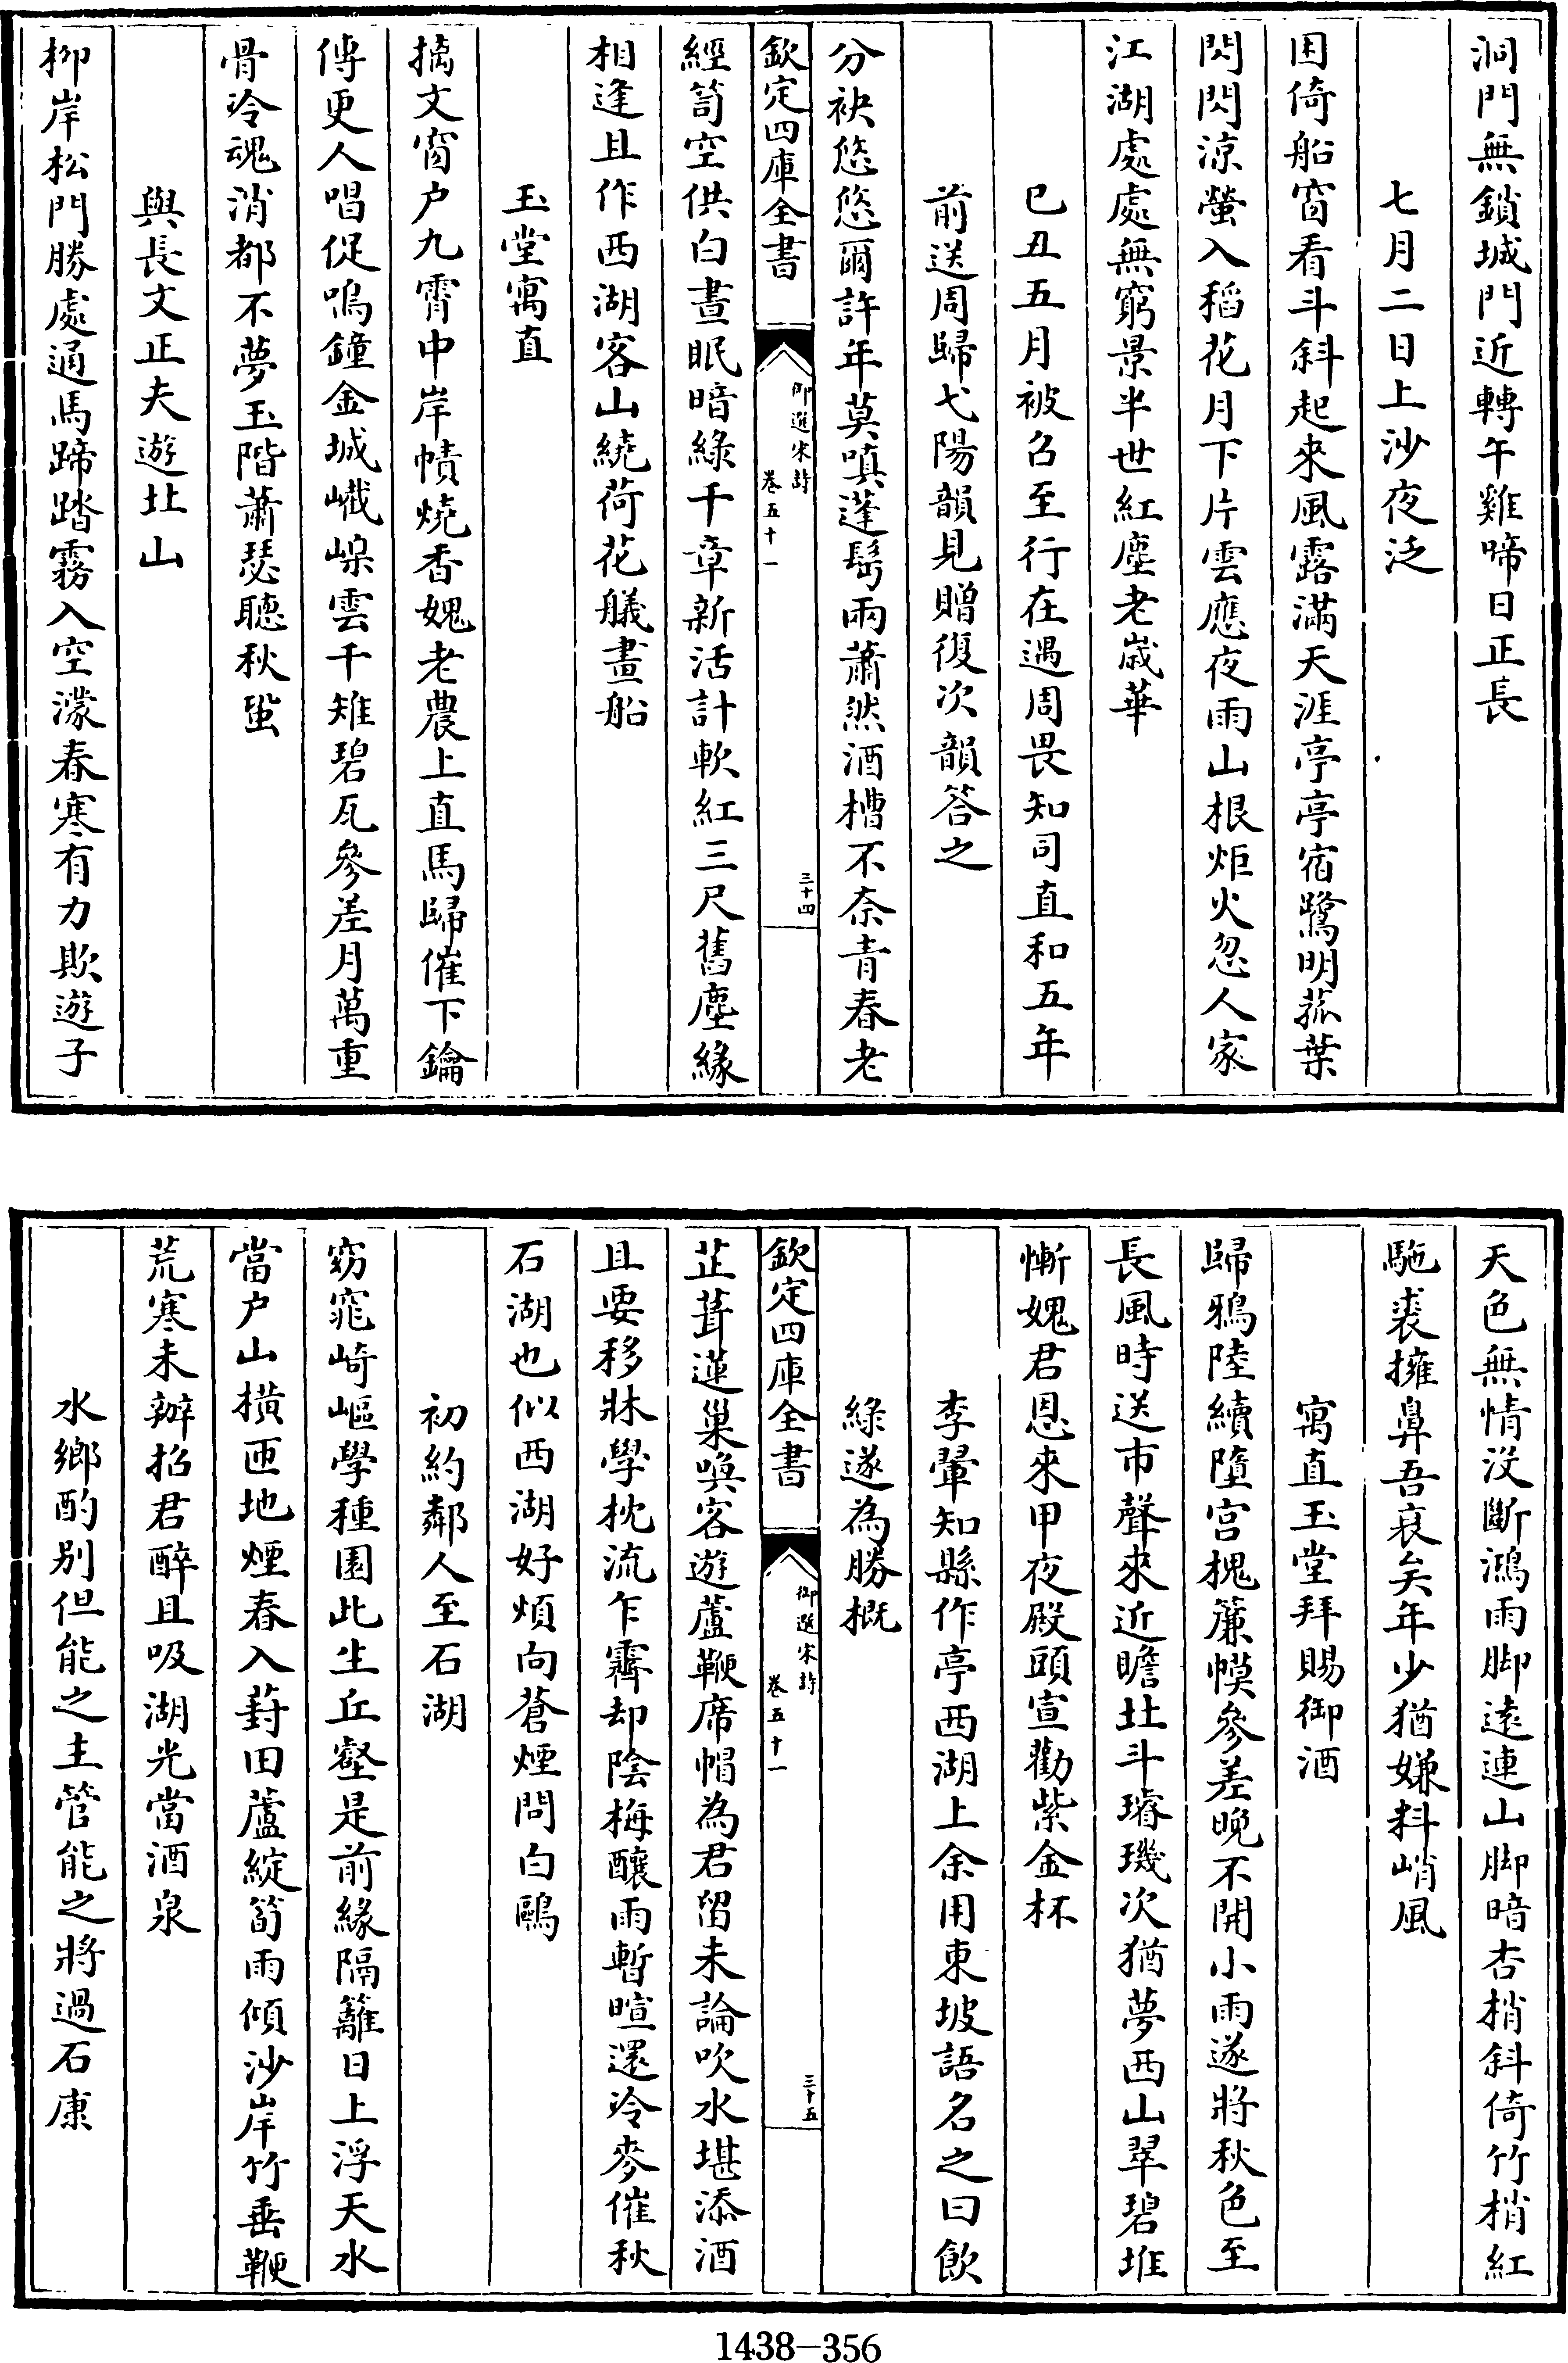 洞門無鎖城門近轉午雞啼日正長
七月二日上沙夜泛
困倚船窗看斗斜起來風露滿天涯亭亭宿鷺明菰葉
閃閃涼螢入稻花月下片雲應夜雨山根炬火忽人家
江湖處處無窮景半世紅塵老歲華
已丑五月被召至行在遇周畏知司直和五年
前送周歸弋陽韻見贈復次韻答之
分袂悠悠爾許年莫嗔蓬髩兩蕭然酒槽不柰青春老
欽定四庫全書
御選宋詩
卷五十一
三十四
經笥空供白晝眠暗綠千章新活計軟紅三尺舊塵緣
相逢且作西湖客山繞荷花艤畫船
玉堂寓直
摛文窗户九霄中岸幘燒香媿老農上直馬歸催下鑰
傳更人唱促鳴鐘金城嶻嵲雲千雉碧瓦參差月萬重
骨冷魂消都不夢玉階蕭瑟聽秋蛩
與長文正夫遊北山
柳岸松門勝處通馬蹄踏霧入空濛春寒有力欺遊子
天色無情没斷鴻雨脚遠連山脚暗杏梢斜倚竹梢紅
駞裘擁鼻吾衰矣年少猶嫌料峭風
寓直玉堂拜賜御酒
歸鴉陸續墮宫槐簾幙參差晚不開小雨遂將秋色至
長風時送市聲來近瞻北斗璿璣次猶夢西山翠碧堆
慚媿君恩來甲夜殿頭宣勸紫金杯
李翬知縣作亭西湖上余用東坡語名之曰飲
綠遂為勝概
欽定四庫全書
御選宋詩
卷五十一
三十五
芷葺蓮巢喚客遊蘆鞭席帽為君留未論吹水堪添酒
且要移牀學枕流乍霽却陰梅釀雨暫暄還冷麥催秋
石湖也似西湖好煩向蒼煙問白鷗
初約鄰人至石湖
窈窕崎嶇學種園此生丘壑是前緣隔籬日上浮天水
當户山橫匝地煙春入葑田蘆綻筍雨傾沙岸竹垂鞭
荒寒未辦招君醉且吸湖光當酒泉
水鄉酌别但能之主管能之將過石康
1438—356